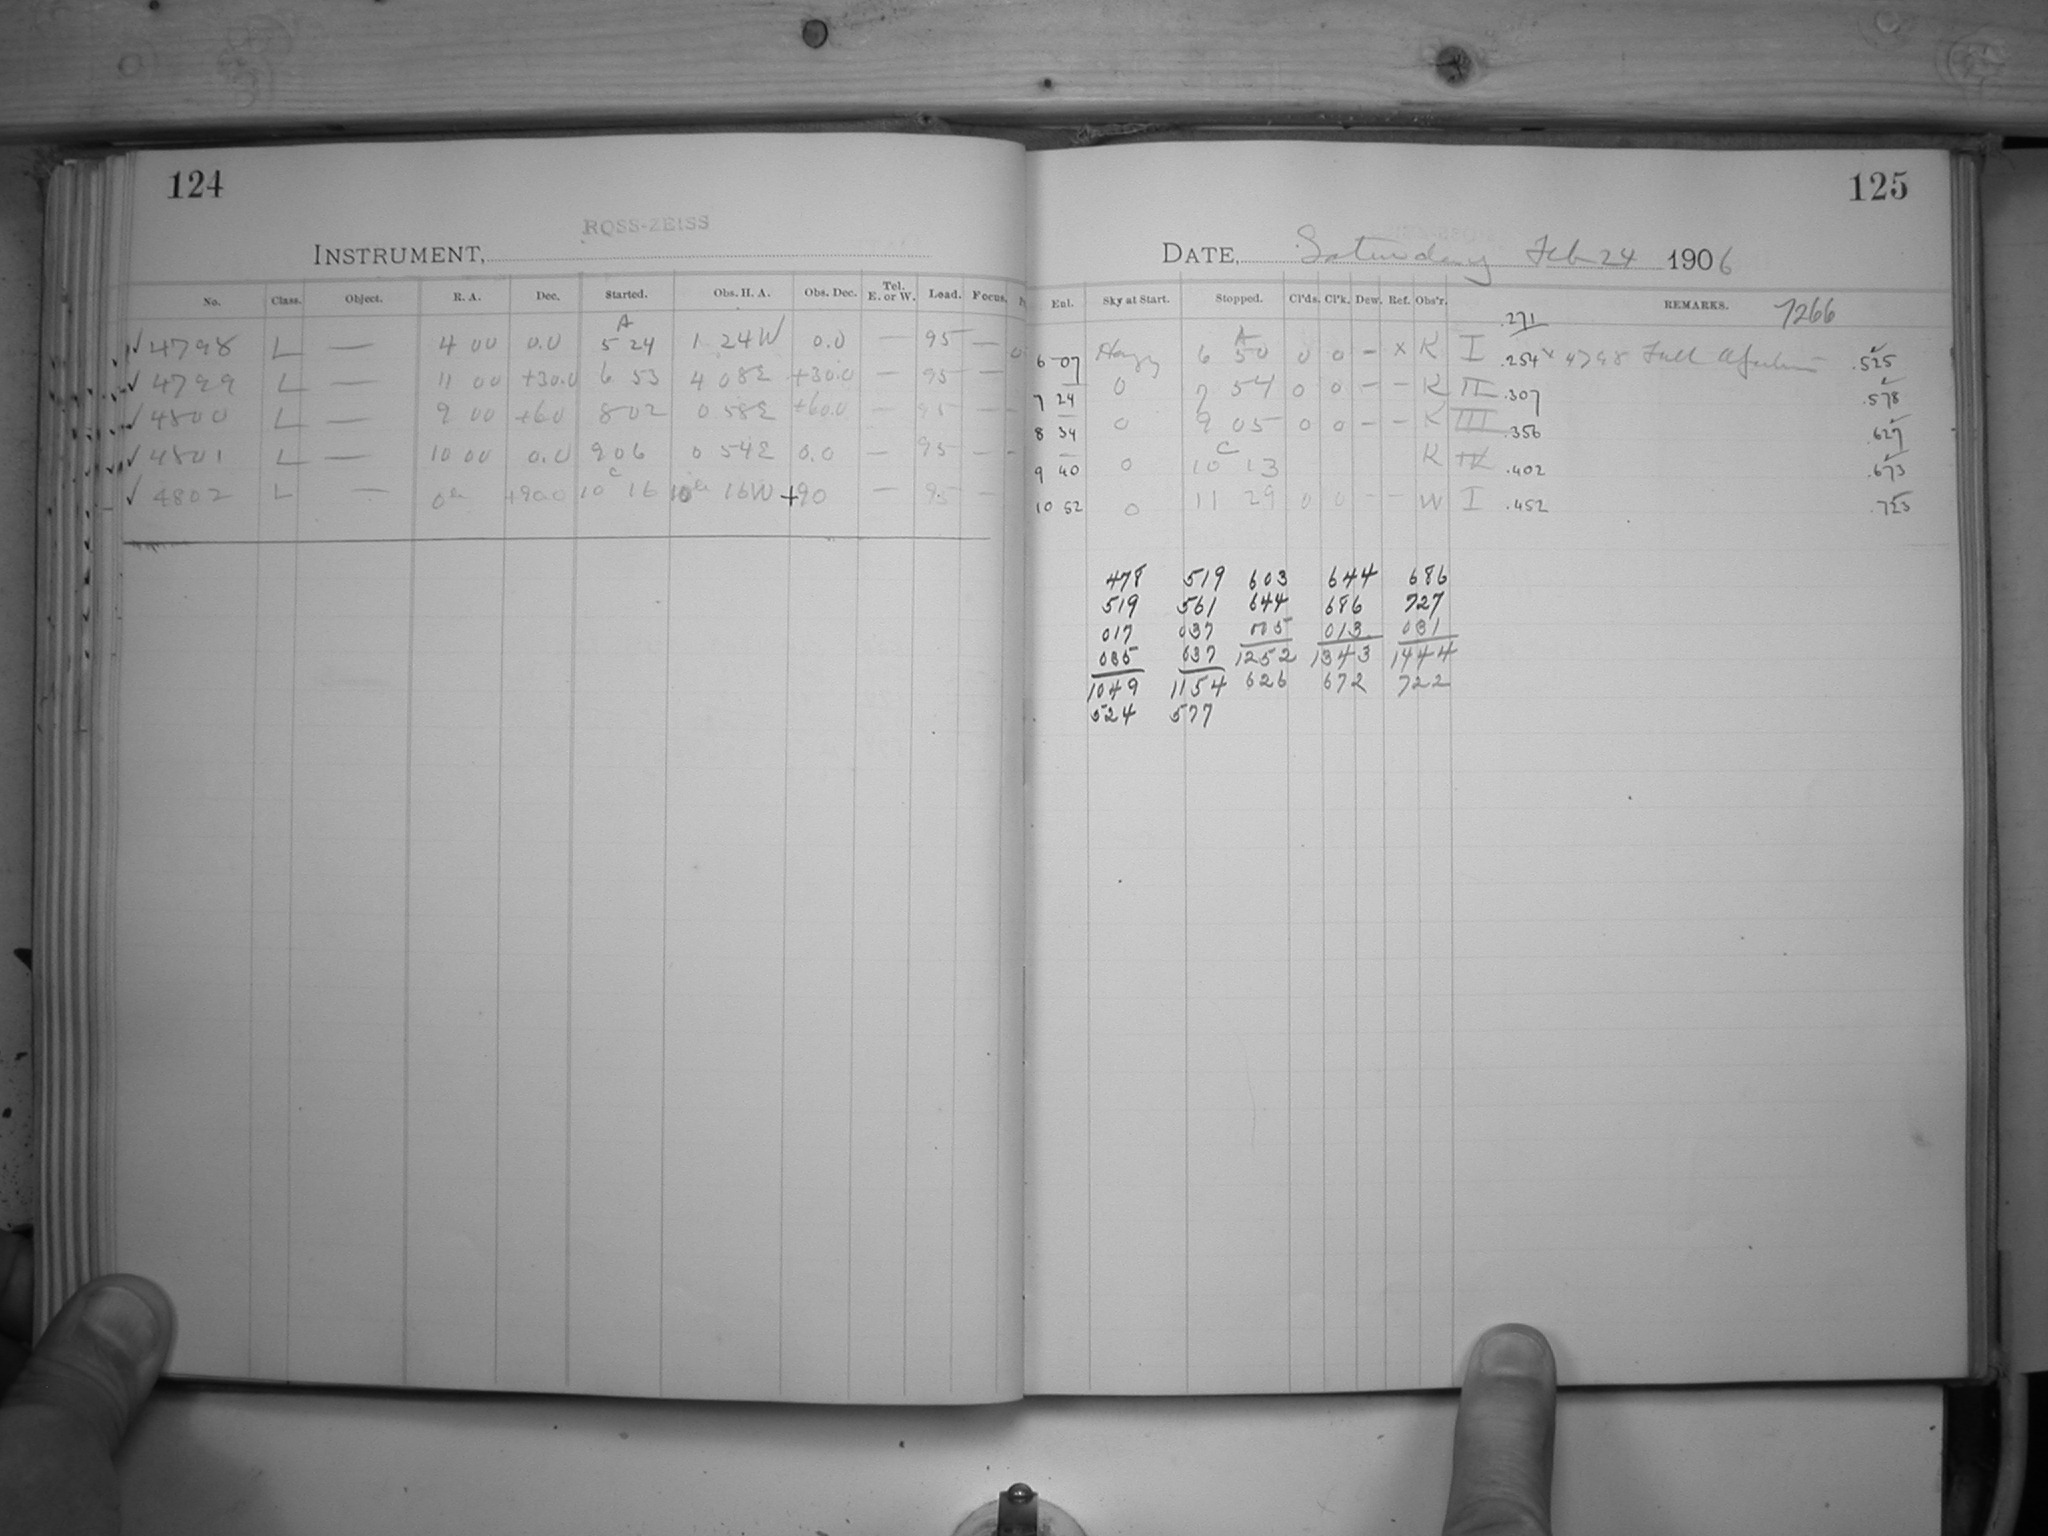 124
ROSS-ZEISS
INSTRUMENT,
No. Class. Object. R. A. Dec. Started. Obs. H. A. Obs. Dec. Tel. E. or W. Load. Focus.
A
✓4798 L — 4 00 0.0 5 24 1 24W 0.0 — 95 —
✓4799 L — 11 00 +30.0 6 53 4 08E +30.0 — 95 —
✓4800 L — 9 00 +60 8 02 0 58E +60.0 — 95 —
✓4801 L — 10 00 0.0 9 06 0 54E 0.0 — 95 — -
C
✓4802 L — 0h +90.0 10 16 10h 16W +90 — 95 —
125
DATE, Saturday Feb 24 1906
Enl. Sky at Start. Stopped. Cl'ds. Cl'k. Dew. Ref. Obs'r. REMARKS. 7266
.271
A
6 07 Hazy 6 50 0 0 - x K I .254 x 4798 Full .525
7 24 0 7 54 0 0 - - K II .307 .578
8 34 0 9 05 0 0 - - K III .356 .627
C
9 40 0 10 13 K IV .402 .673
10 52 0 11 29 0 0 - - W I .452 .723
478 519 603 644 686
519 561 644 686 727
017 037 005 013 031
035 037 1252 1343 1444
1049 1154 626 672 722
524 577